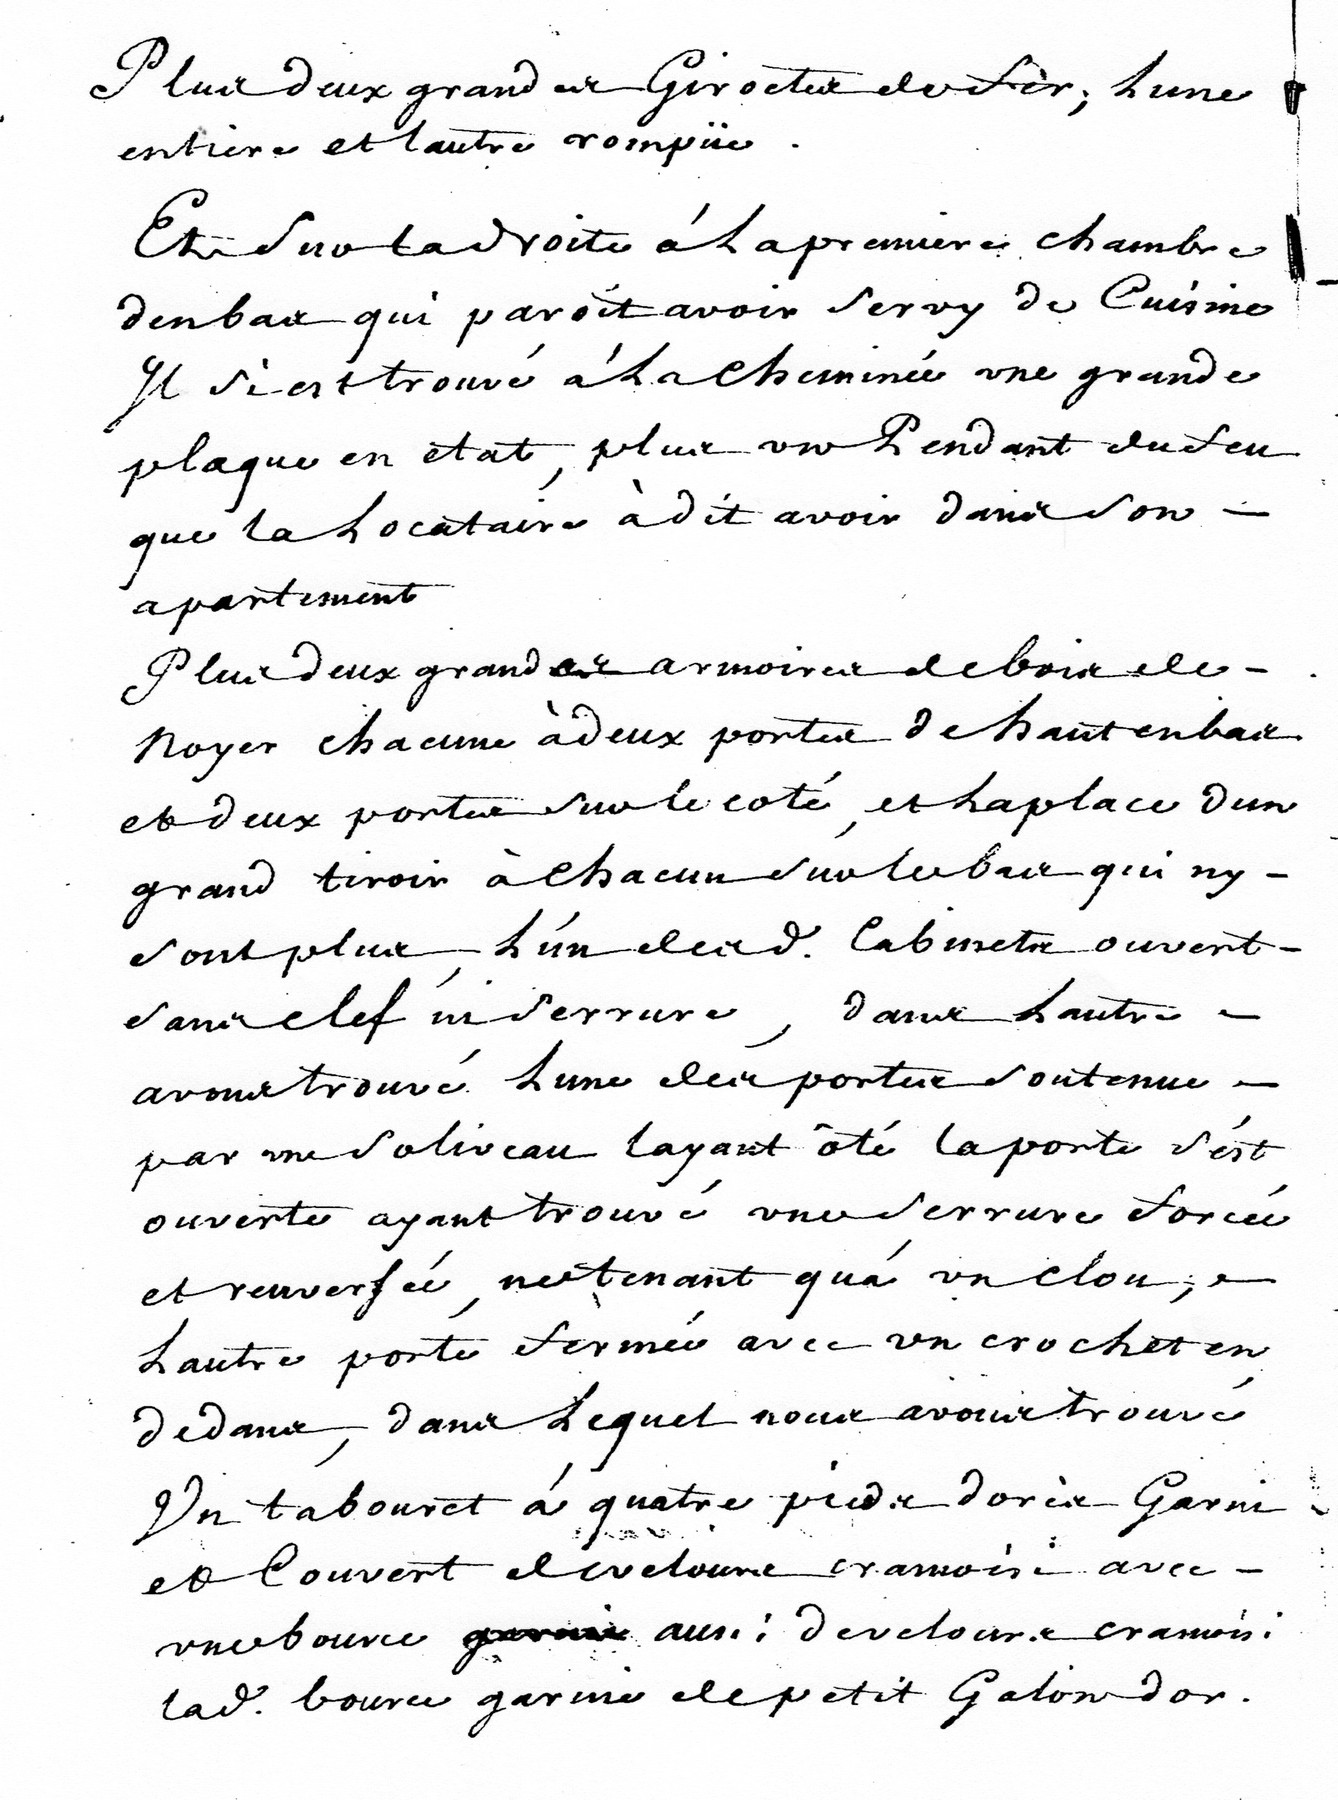 Plus deux grandes Giroetes de fer, Lune
entiere et lautre rompüe.
Et Sur la droite á La premiere chambre
denbas qui paroit avoir Servy de Cuisine
Jl S'est trouvé á La Cheminée vne grande
plaque en etat, plus vn Pendant du feu
que la Locataire à dit avoir dans Son -
apartement
Plus deux grandes armoires de bois de -
Noyer chacune à deux portes de haut enbas
et deux portes Sur le coté, et La place dun
grand tiroir à Chacun Sur le bas qui ny -
Sont plus, L'un desd. Cabinets ouvert -
Sans clef ni Serrure, dans Lautre -
avons trouvé Lune des portes Soutenue -
par un Soliveau layant ôté la porte S'ést
ouverte ayant trouvé vne Serrure forcée
et renversée, ne tenant quá vn clou, -
Lautre porte fermée avec vn crochet en
dedans, dans Lequel nous avons trouvé
Vn tabouret á quatre pieds dorés Garni
et Couvert de velours cramoisi avec -
vne bource aussi de velours cramoisi
lad. bource garnie de petit Galon dor.